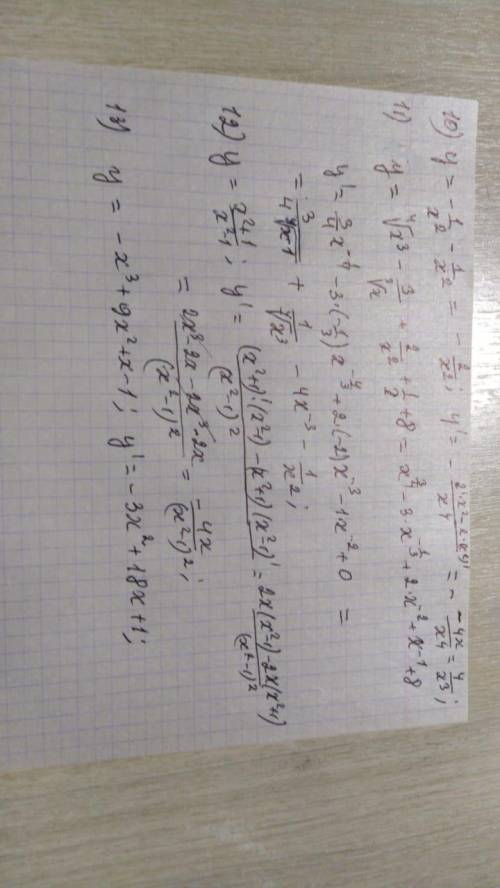 10) y = -1/x² - 1/x² = -2/x²; y' = - (2'·x² - 2·(x²)')/x⁴ = - (-4x)/x⁴ = 4/x³;
11) y = ⁴√x³ - 3/³√x + 2/x² + 1/x + 8 = x^(3/4) - 3·x^(-1/3) + 2·x⁻² + x⁻¹ + 8
y' = 3/4 x^(-1/4) - 3·(-1/3) x^(-4/3) + 2·(-2)x⁻³ - 1x⁻² + 0 =
= 3/(4 ⁴√x) + 1/ - 4x⁻³ - 1/x²;
12) y = (x²+1)/(x²-1); y' = ((x²+1)'(x²-1) - (x²+1)(x²-1)')/(x²-1)² = (2x(x²-1) - 2x(x²+1))/(x²-1)²
= (2x³ - 2x - 2x³ - 2x)/(x²-1)² = -4x/(x²-1)²;
13) y = -x³ + 9x² + x - 1; y' = -3x² + 18x + 1;